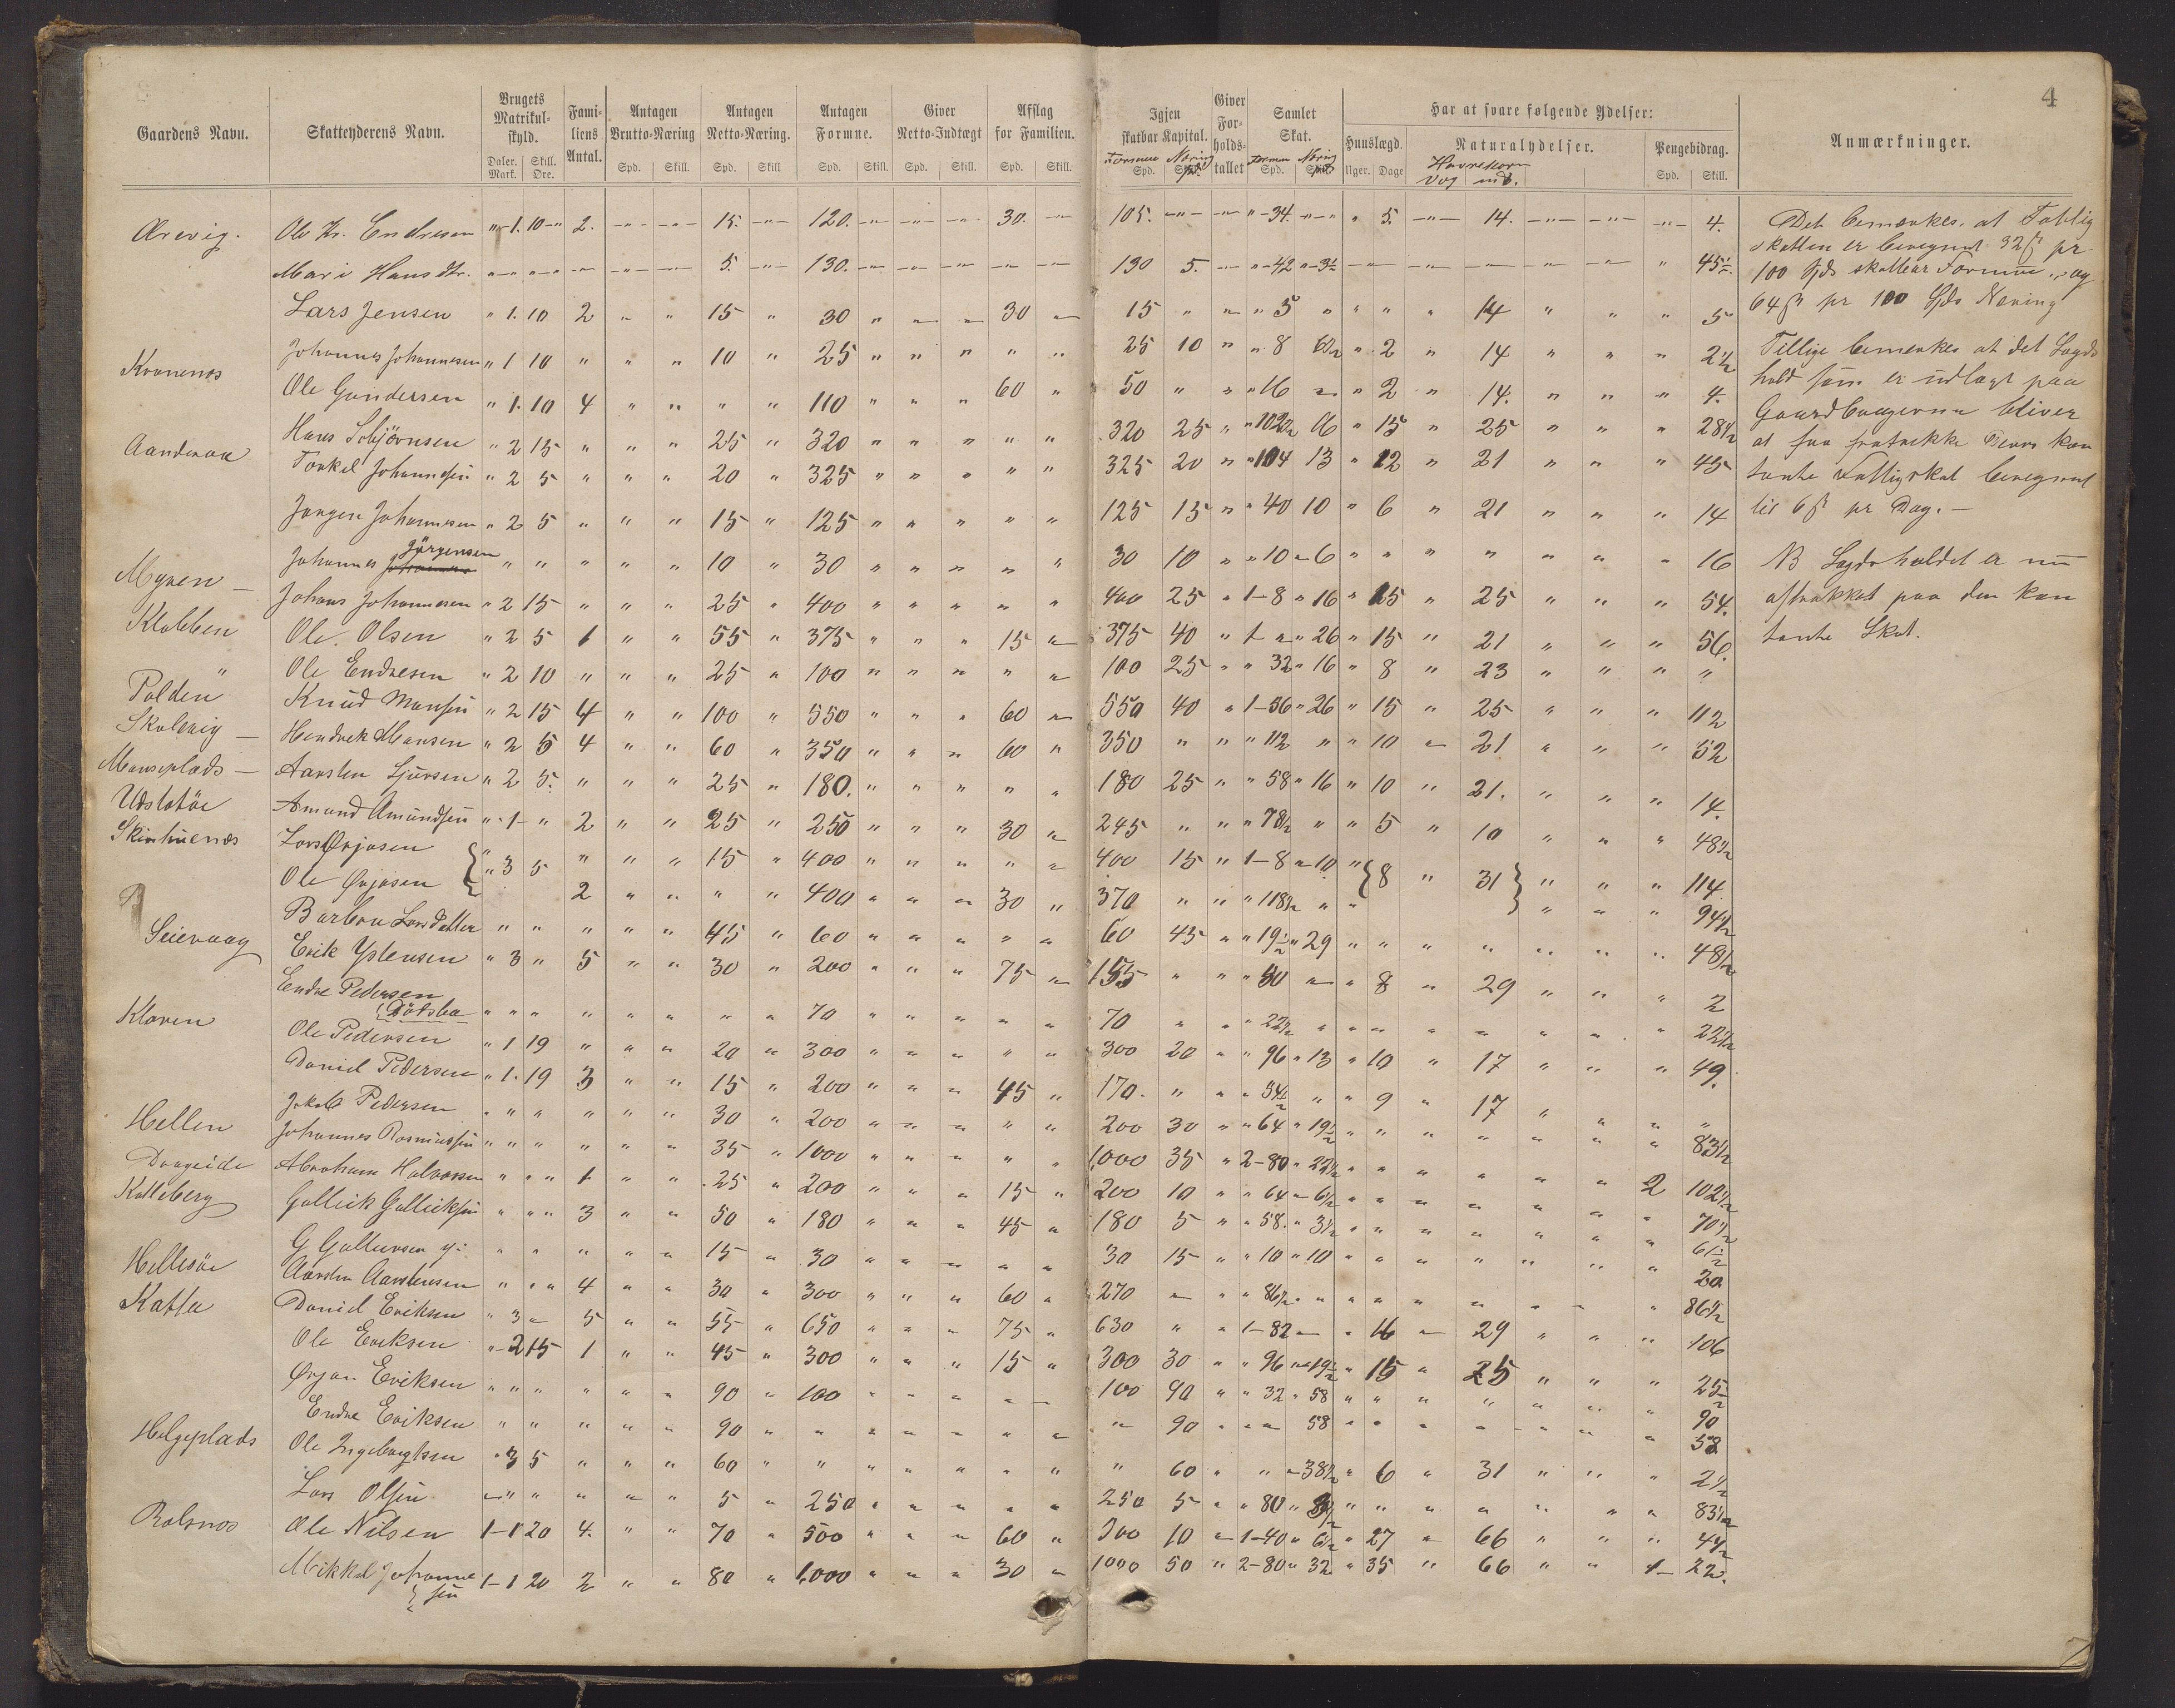 4
Gaardens Navn. Skatteyderens Navn. Brugets Matrikul-skyld. Familiens Antal. Antagen Brutto-Næring Antagen Netto-Næring. Antagen Formue. Giver Netto-Indtægt Afslag for Familien. Igjen skatbar Kapital. Giver Forholdstallet Samlet Skat. Har at svare følgende Ydelser: Anmærkninger.
Huuslægd. Naturalydelser. Pengebidrag.
Daler. Mark. Skill. Øre. Spd. Skill. Spd. Skill Spd. Skill. Spd. Skill. Spd. Skill. Formue Spd. Næring Spd. Formue Spd. Næring Uger. Dage Havrekorn Vog mk. Spd. Skill.
Ærevig. Ole Kr. Endresen " 1. 10 " 2. " " 15. " 120. " " " 30. " 105. " " " 34. " " " 5. " 14. " " " 4.
Mari Hansdtr. " " " " " " 5. " 130. " " " " " 130 5. " " 42 " 3½ " " " " " " " 45½.
Lars Jensen " 1. 10 2 " " 15 " 30 " " " 30 " 15 " " " 5 " " " " 14 " " " 5
Johannes Johannesen " 1 10 " " " 10 " 25 " " " " " 25 10 " " 8 6½ " 2 " 14 " " " 2½
Kvanenos
Ole Gundersen " 1. 10 4 " " " " 110 " " " 60 " 50 " " " 16 " " 2 " 14. " " " 4.
Hans Schjövnsen " 2 15 " " " 25 " 320 " " " " " 320 25 " " 102½ 16 " 15 " 25 " " " 28½
Aanderaa
Torkel Johannesen " 2 5 " " " 20 " 325 " " " " " 325 20 " " 104 13 " 12 " 21 " " " 45
Jørgen Johannesen " 2 5 " " " 15 " 125 " " " " " 125 15 " " 40 10 " 6 " 21 " " " 14
Johannes Jörgensen " " " " " " 10 " 30 " " " " " 30 10 " " 10 " 6 " " " " " " " 16
Myren — Johans Johannesen " 2 15 " " " 25 " 400 " " " " " 400 25 " 1-8 " 16 " 15 " 25 " " " 54.
Klobben Ole. Olsen " 2 5 1 " " 55 " 375 " " " 15 " 375 40 " 1 " " 26 " 15 " 21 " " " 56.
" Ole Endresen " 2 10 " " " 25 " 100 " " " " " 100 25 " " 32 " 16 " 8 " 23 " " " "
Polden Knud Monsen " 2 15 4 " " 100 " 550 " " " 60 " 550 40 " 1-56 " 26 " 15 " 25 " " " 112
Skolevig — Hendrek Hansen " 2 5 4 " " 60 " 350 " " " 60 " 350 " " " 112 " " 10 " 21 " " " 52
Monseplads — Aarsten Sjursen " 2 5. " " " 25 " 180. " " " " " 180 25 " " 58 " 16 " 10 " 21. " " " 14.
Udslotöe Amund Amundsen " 1 " 2 " " 25 " 250 " " " 30 " 245 " " " 78½ " " 5 " 10 " " " 48½
Lars Ørjasen " 3 5 " " " 15 " 400 " " " " " 400 15 " 1-8 " 10 " 8 " 31 " " " 114
Ole Ørjasen 2 " " " " 400 " " " 30 " 370 " " " 118½ " " " " " 94½
Barbra Larsdatter " " " " " 45 " 60 " " " " " 60 45 " " 19½ " 29 " " " " " " " 48½
Seievaag Erik Ystensen " 3 " 5 " " 30 " 200 " " " 75 " 155 " " " 50 " " 8 " 29 " " " 2
Endre Pedersen " " " " " " " " 70 " " " " " 70 " " " 22½ " " " " " " " " 22½
Klaven Ole Pedersen " 1 19 " " " 20 " 300 " " " " " 300 20 " " 96 " 13 " 10 " 17 " " " 49.
Daniel Pedersen " 1. 19 3 " " 15 " 200 " " " 45 " 170. " " " 54½ " " 9 " 17 " " " "
Jakob Pedersen " " " " " " 30 " 200 " " " " " 200 30 " " 64 " 19½ " " " " " " " 83½
Hellen Johannes Rasmussen " " " " " " 35 " 1000 " " " " " 1000 35 " 2-80 " 22½ " " " " " " 2 102½
Drageide Abraham Halvorsen " " " 1 " " 25 " 200 " " " 15 " 200 10 " " 64 " 6½ " " " " " " " 70½
Kolleberg Gullick Gullicksen " " " 3 " " 50 " 180 " " " 45 " 180 5 " " 58. " 3½ " " " " " " " 61½
" " " " " 15 " 30 " " " " " 30 15 " " 10 " 10 " " " " " " " 20
Hellesöe Aarsten Aarstensen " " " 4 " " 30 " 300 " " " 60 " 270 " " " 86½ " " " " " " " " 86½
Katla Daniel Eriksen " 3 " 5 " " 55 " 650 " " " 75 " 630 " " 1-82 " " 16 " 29 " " " 106
Ole Eriksen " 2 15 1 " " 45 " 300 " " " 15 " 300 30 " " 96 " 19½ " 15 " 25 " " " 25½
Ørjan Eriksen " " " " " " 90 " 100 " " " " " 100 90 " " 32 " 58 " " " " " " " 90
Endre Eriksen " " " " " 90 " " " " " " " " 90 " " " 58 " " " " " " " 58
Helgeplads Ole Ingebregtsen " 3 5 " " " 60 " " " " " " " " 60 " " " 38½ " 6 " 31 " " " 2½
Lars Olsen " " " " " 5 " 250 " " " " " 250 5 " " 80 " 3½ " " " " " " " 83½
Rolsnos Ole Nilsen 1-1 20 4. " " 70 " 500 " " " 60 " 500 10 " 1-40 " 6½ " 27 " 66 " " " 4½
Mikkel Johannesen 1-1 20 2 " " 80 " 1000 " " " 30 " 1000 50 " 2-80 " 32 " 35 " 66 " " 1 22.
Det bemærkes, at Fattig
skatten er beregnet 32 ß pr
100 Spd skatbar Formue, og
64 ß pr 100 Spd Næring
Tillige bemerkes at det Lægds
hold som er udlagt paa
Gaardbrugerne bliver
at fra fratrekke Deres kon
tante Fattigskat beregnet
til 6 ß pr Dag. —
NB Lægdsholdet er nu
aftrokket paa den kon
tante Skat.